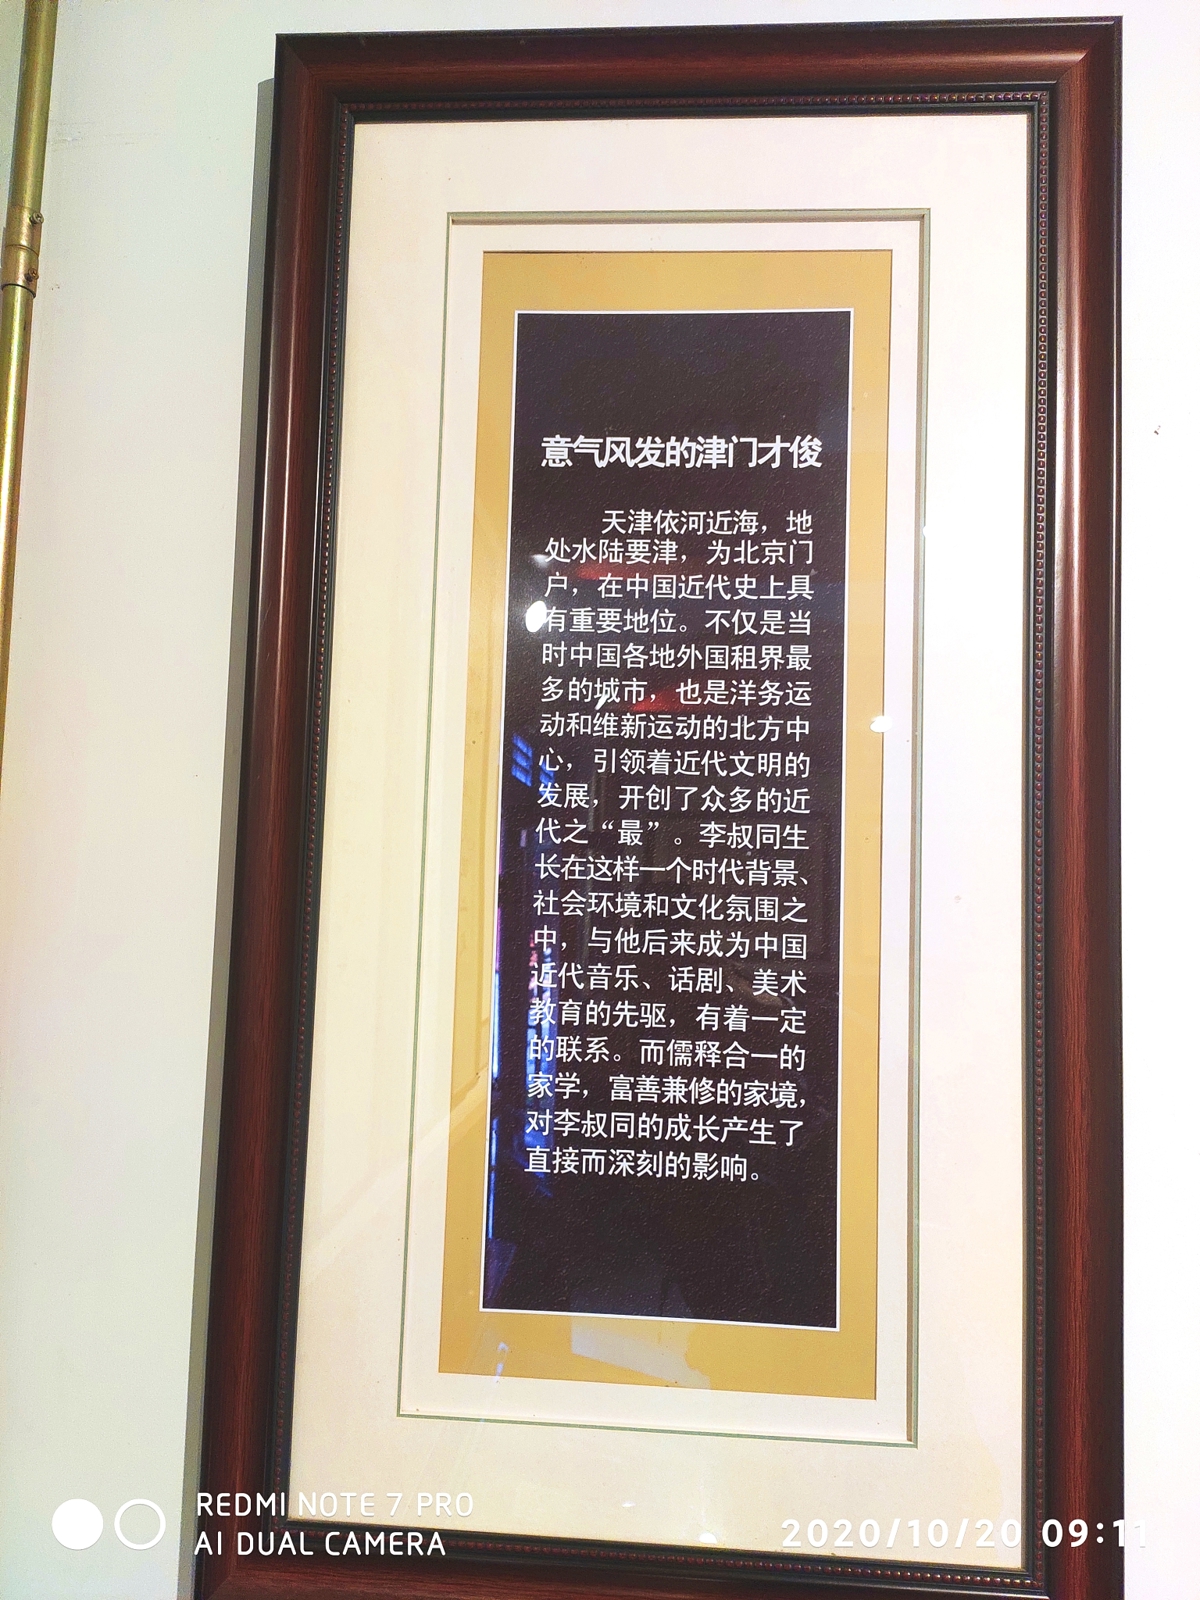 意气风发的津门才俊
天津依河近海，地
处水陆要津，为北京门
户，在中国近代史上具
有重要地位。不仅是当
时中国各地外国租界最
多的城市，也是洋务运
动和维新运动的北方中
心，引领着近代文明的
发展，开创了众多的近
代之“最”。李叔同生
长在这样一个时代背景、
社会环境和文化氛围之
中，与他后来成为中国
近代音乐、话剧、美术
教育的先驱，有着一定
的联系。而儒释合一的
家学，富善兼修的家境，
对李叔同的成长产生了
直接而深刻的影响。
REDMI NOTE 7 PRO
AI DUAL CAMERA
2020/10/20 09:11